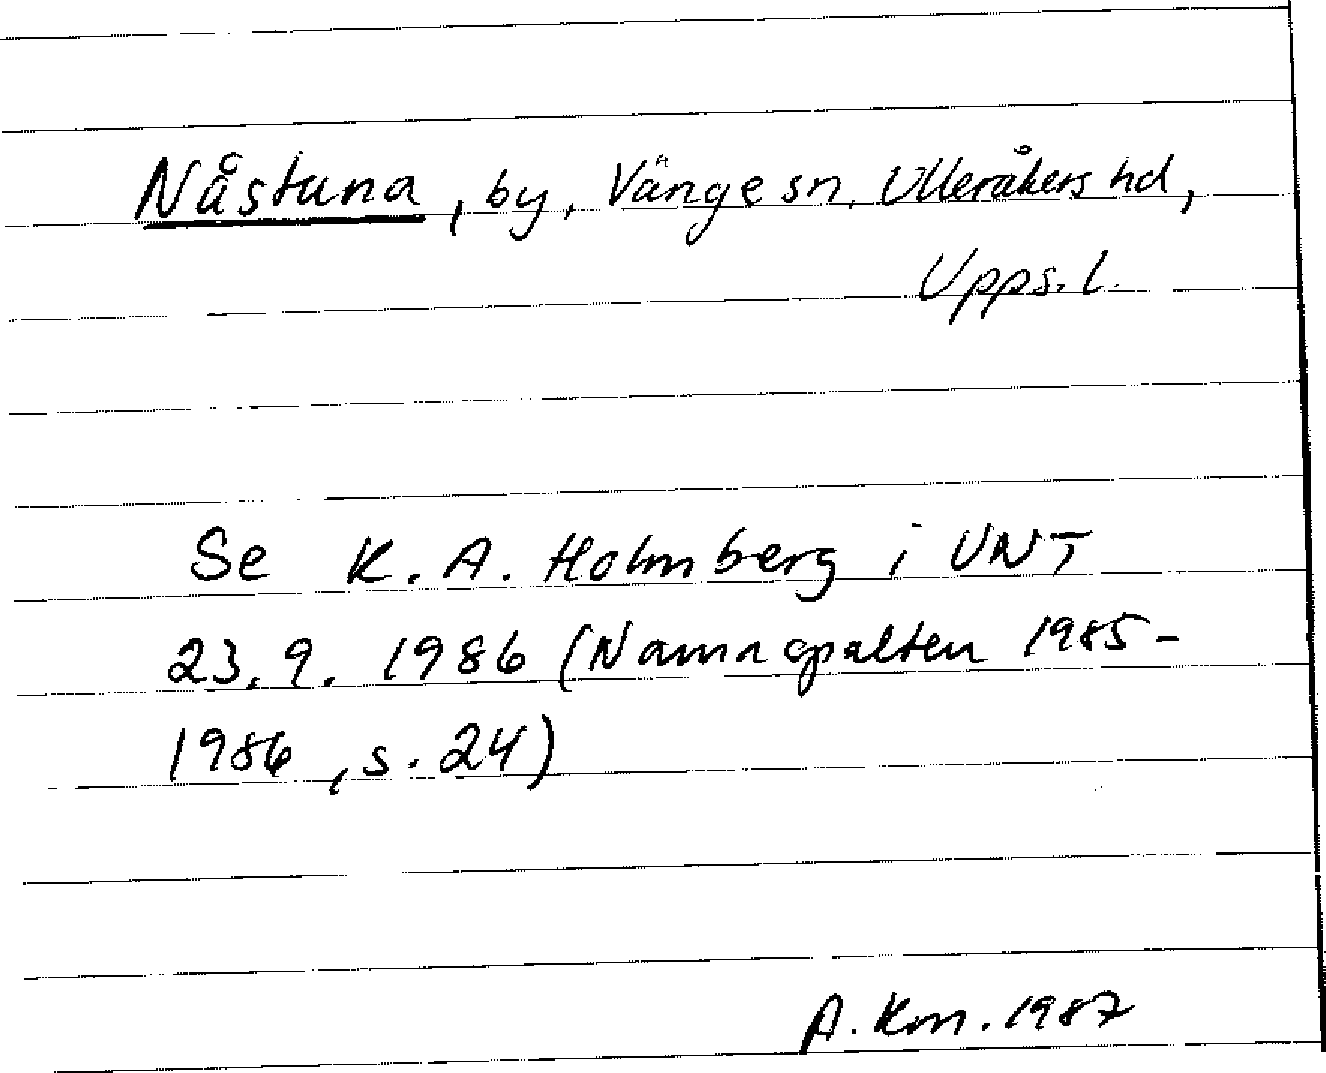 Nåstuna, by, Vänge sn, Ulleråkers hd,
Upps. l.
Se K. A. Holmberg i UNT
23.9. 1986 (Namnspalten 1985-
1986, s. 24)
A. Km. 1987